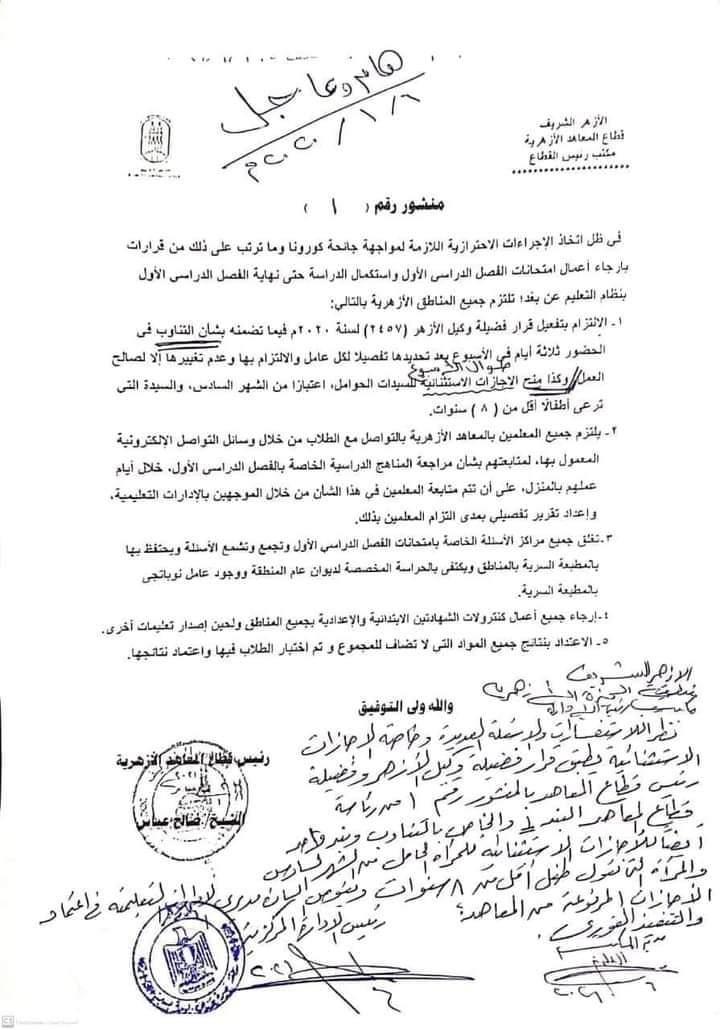 هام وعاجل
الأزهر الشريف
قطاع المعاهد الأزهرية
مكتب رئيس القطاع
منشور رقم ( ١ )
فى ظل اتخاذ الإجراءات الاحترازية اللازمة لمواجهة جائحة كورونا وما ترتب على ذلك من قرارات
بارجاء أعمال امتحانات الفصل الدراسى الأول واستكمال الدراسة حتى نهاية الفصل الدراسى الأول
بنظام التعليم عن بعد؛ تلتزم جميع المناطق الأزهرية بالتالي:
١- الالتزام بتفعيل قرار فضيلة وكيل الأزهر (٢٤٥٧) لسنة ٢٠٢٠م فيما تضمنه بشأن التناوب فى
الحضور ثلاثة أيام في الأسبوع بعد تحديدها تفصيلا لكل عامل والالتزام بها وعدم تغييرها إلا لصالح
طوال الأسبوع
العمل وكذا منح الاجازات الاستثنائية للسيدات الحوامل، اعتبارًا من الشهر السادس، والسيدة التى
ترعى أطفالًا أقل من ( ٨ ) سنوات.
٢- يلتزم جميع المعلمين بالمعاهد الأزهرية بالتواصل مع الطلاب من خلال وسائل التواصل الإلكترونية
المعمول بها، لمتابعتهم بشأن مراجعة المناهج الدراسية الخاصة بالفصل الدراسى الأول، خلال أيام
عملهم بالمنزل، على أن تتم متابعة المعلمين فى هذا الشأن من خلال الموجهين بالإدارات التعليمية،
وإعداد تقرير تفصيلي بمدى التزام المعلمين بذلك.
٣- تغلق جميع مراكز الأسئلة الخاصة بامتحانات الفصل الدراسي الأول وتجمع وتشمع الأسئلة ويحتفظ بها
بالمطبعة السرية بالمناطق ويكتفى بالحراسة المخصصة لديوان عام المنطقة ووجود عامل نوباتجى
بالمطبعة السرية.
٤- إرجاء جميع أعمال كنترولات الشهادتين الابتدائية والإعدادية بجميع المناطق ولحين إصدار تعليمات أخرى.
٥- الاعتداد بنتائج جميع المواد التي لا تضاف للمجموع و تم اختبار الطلاب فيها واعتماد نتائجها.
والله ولى التوفيق
رئيس قطاع المعاهد الأزهرية
الشيخ/ صالح عباس
الأزهر الشريف
منطقة الجيزة الأزهرية
نظرا للاستفسارات والاسئلة العديدة وخاصة الاجازات
الاستثنائية يطبق قرار فضيلة وكيل الأزهر وفضيلة
رئيس قطاع المعاهد بالمنشور رقم ١ من رئاسة
قطاع المعاهد البند والخاص بالتناوب وبند واحد
أيضاً للأجازات الاستثنائية للمرأة الحامل من الشهر السادس
والمرأة التي تعول طفل أقل من ٨ سنوات ويفوض السادة مديرى الإدارات التعليمية في اعتماد
الأجازات المرفوعة من المعاهد؛
والتنفيذ الفورى.
رئيس الإدارة المركزية